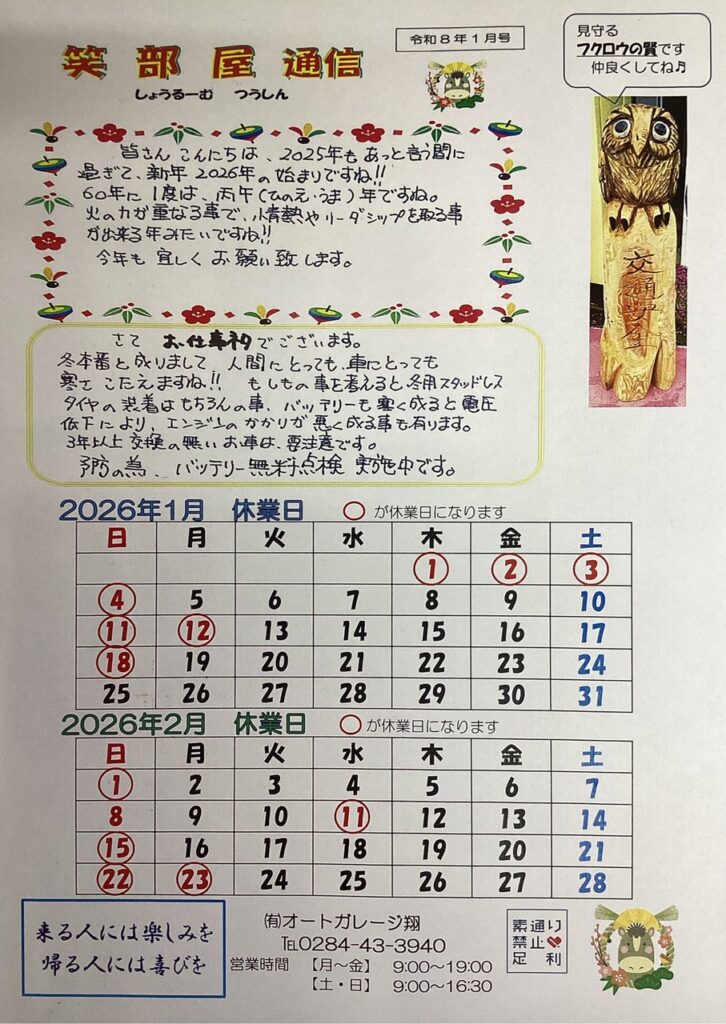 令和８年１月号
笑部屋通信
しょうるーむ つうしん
見守る
フクロウの賢です
仲良くしてね♬
交通安全
皆さん こんにちは、2025年も あっと言う間に
過ぎて、新年 2026年の始まりですね!!
60年に1度は、丙午(ひのえうま)年ですね。
火の力が重なる事で、情熱やリーダシップを取る事
が出来る年みたいですね!!
今年も 宜しく お願い致します。
さて お仕事ネタでございます。
冬本番と成りまして、人間にとっても、車にとっても
寒さ こたえますね!! もしもの事を考えると冬用スタッドレス
タイヤの装着はもちろんの事、バッテリーも寒く成ると電圧
低下により、エンジンのかかりが悪く成る事も有ります。
3年以上交換の無いお車は、要注意です。
予防の為、バッテリー無料点検 実施中です。
2026年1月 休業日 ○ が休業日になります
日 月 火 水 木 金 土
1 2 3
4 5 6 7 8 9 10
11 12 13 14 15 16 17
18 19 20 21 22 23 24
25 26 27 28 29 30 31
2026年2月 休業日 ○ が休業日になります
日 月 火 水 木 金 土
1 2 3 4 5 6 7
8 9 10 11 12 13 14
15 16 17 18 19 20 21
22 23 24 25 26 27 28
来る人には楽しみを
帰る人には喜びを
㈲オートガレージ翔
℡0284-43-3940
営業時間 【月～金】 9:00～19:00
【土・日】 9:00～16:30
素通り
禁止❤
足利